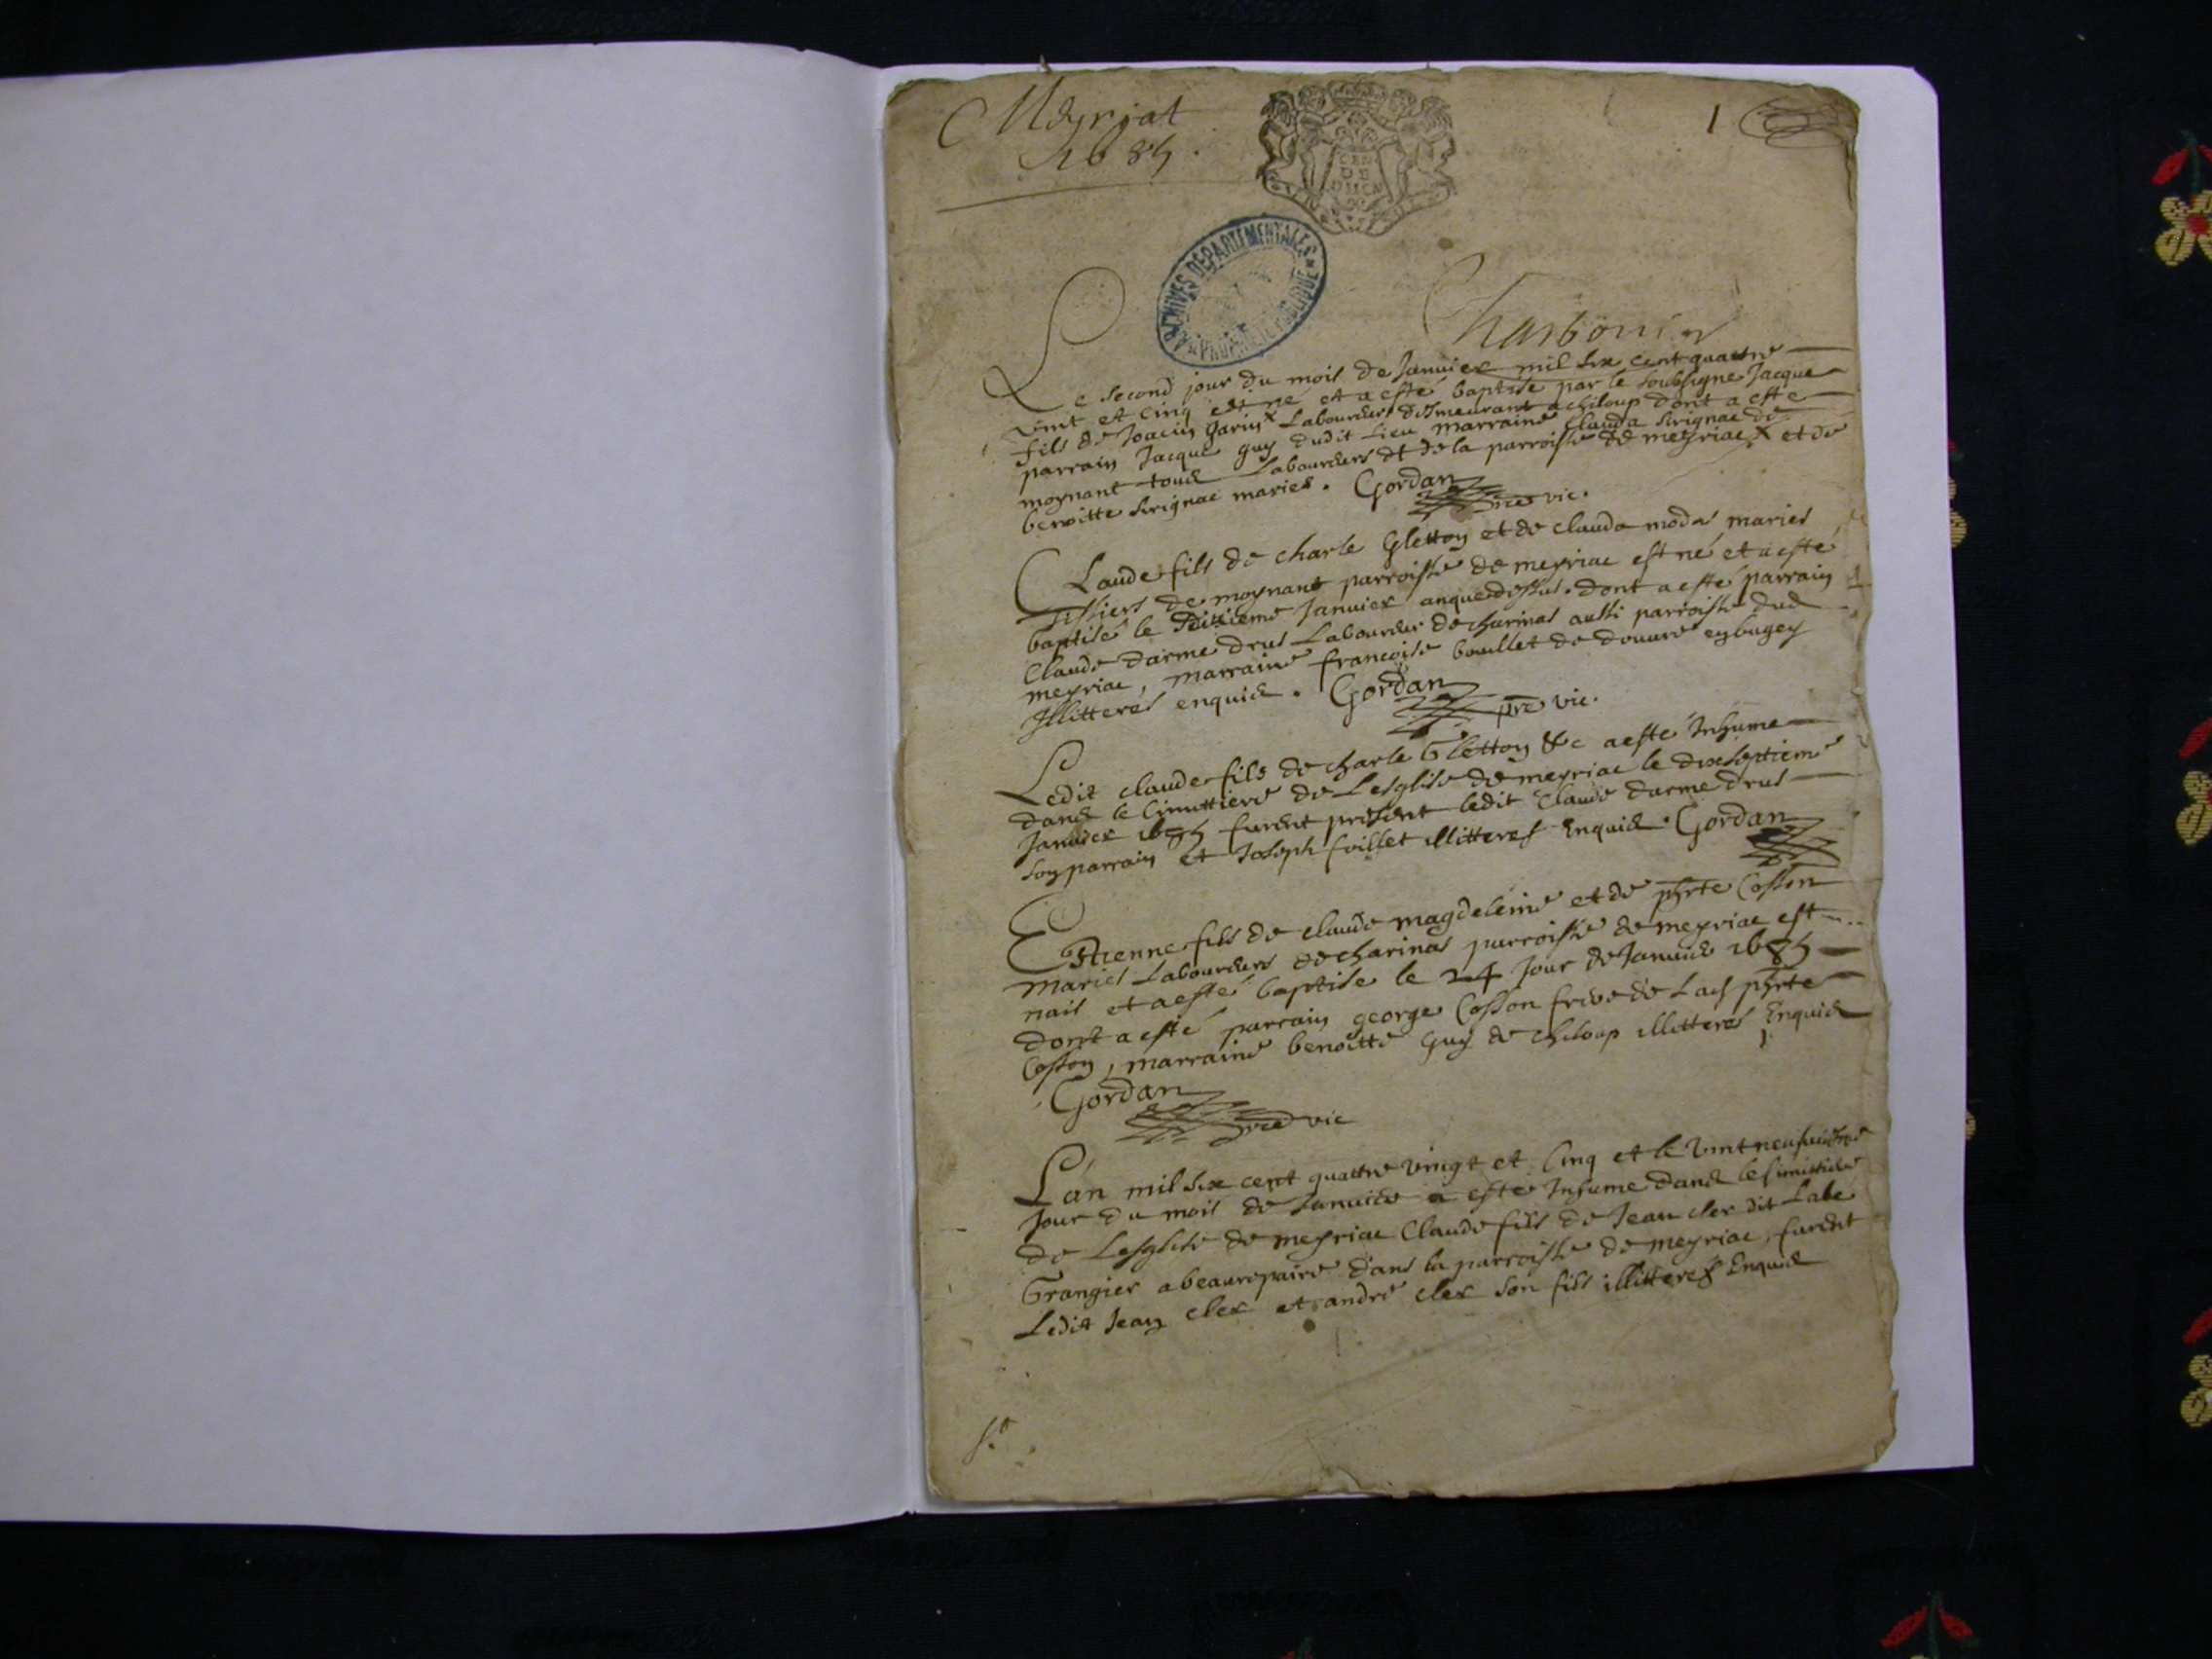 Meyriat 1
1685.
GEN
DE
ARCHIVES DEPARTEMENTALES
Charbonier
Le second jour du mois de Janvier mil six cent quattre
vint et cinq est né et a esté baptisé par le soubsigne Jacque
fils de Joacin Garin x Laboureur demeurant a chiloup dont a este
parrain Jacque guy dudit Lieu marraine Clauda sirignac de
moynant tous Laboureurs et de la parroisse de meyriac x et de
benoitte sirignac mariés. Gordan
pre vic.
Claude fils de charle Gletton et de clauda modas mariés
tissiers de moynant parroisse de meyriac est né et a esté
baptisé le seizieme Janvier anque dessus. dont a esté parrain
Claude darmedrus Laboureur de charinas aussi parroisse dud
meyriac, marraine francoise boullet de douvre en bugey
Illitterés enquis. Gordan
pre vic.
Ledit claude fils de charle Gletton &c a esté Inhume
dans le Cimittiere de Lesglise de meyriac le dixseptieme
Janvier 1685 furent présent ledit Claude darmedrus
son parrain et Joseph foillet illitteres Enquis. Gordan
Estienne fils de claude magdeleine et de phrte Cosson
mariés Laboureurs de charinas parroisse de meyriac est
nais et a esté baptisé le 24 Jour de Janvier 1685
dont a esté parrain george Cosson frere de Lad phrte
Cosson, marraine benoitte Guy de chiloup illitterés Enquis
Gordan
pre vic
Lan mil six cent quattre vingt et Cinq et le vint neufvieme
Jour du mois de Janvier a este Inhume dans le simittiere
de Lesglise de meyriac Claude fils de Jean cler dit Labe
Grangier a beaurepaire dans la parroisse de meyriac, furent
Ledit Jean cler et andré cler son fils illitteres Enquis